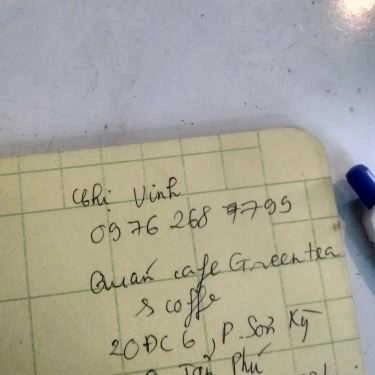 Chị Vinh
0976 268 7799
Quán cafe Greentea
s coffe
20ĐC 6, P. Sơn Kỳ
Tân Phú